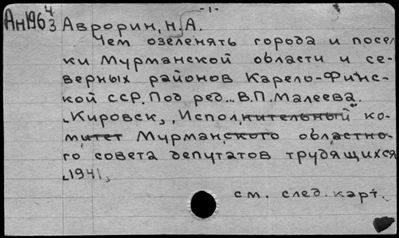 -1-
Ан1964/3 Аврорин, Н.А.
Чем озеленять города и посел
ки Мурманской области и се-
верных районов Карело-Финс-
кой ССР. Под ред... В.П.Малеева.
Кировск, Исполнительный ко-
митет Мурманского областно-
го совета депутатов трудящихся
1941,
см. след. карт.